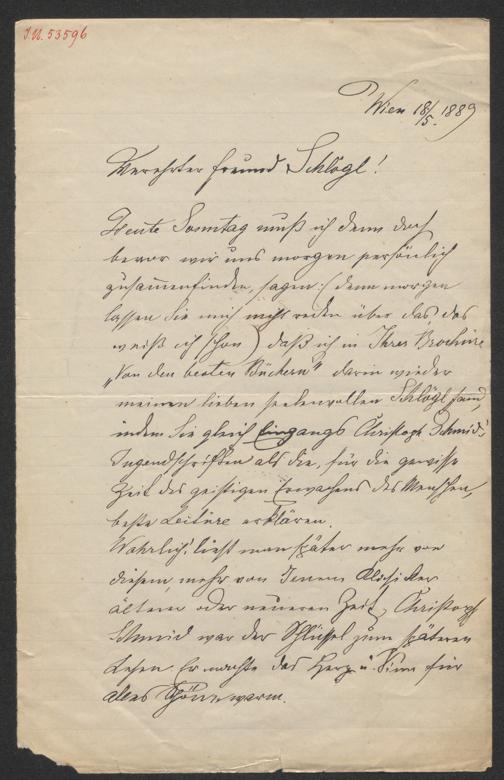 J.N. 53596
Wien 18/5. 1889
Verehrter Freund Schlögl!
Heute Sonntag muß ich denn doch
bevor wir uns morgen persönlich
zusammenfinden, sagen: (denn morgen
lassen Sie mich nicht reden über das das
weiß ich schon) daß ich in Ihrer Brochüre
„Von den besten Büchern“ darin wieder
meinen lieben seelenvollen Schlögl fand,
indem Sie gleich Eingangs Christoph Schmid's
Jugendschriften als die, für die gewisse
Zeit des geistigen Erwachens des Menschen,
beste Leitüre erklären.
Wahrlich! liest man später mehr von
diesem, mehr von Jenem Classiker
älterer oder neueren Zeit, Christoph
Schmid war der Schlüssel zum späteren
Lesen. Er machte das Herz u. Sinn für
alles Schöne warm.